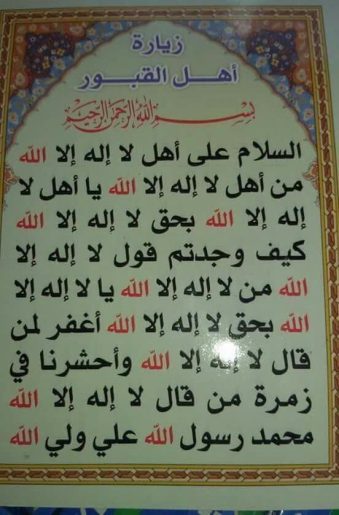 زيارة
أهل القبور
بسم الله الرحمن الرحيم
السلام على أهل لا إله إلا الله
من أهل لا إله إلا الله يا أهل لا
إله إلا الله بحق لا إله إلا الله
كيف وجدتم قول لا إله إلا
الله من لا إله إلا الله يا لا إله إلا
الله بحق لا إله إلا الله أغفر لمن
قال لا إله إلا الله وأحشرنا في
زمرة من قال لا إله إلا الله
محمد رسول الله علي ولي الله